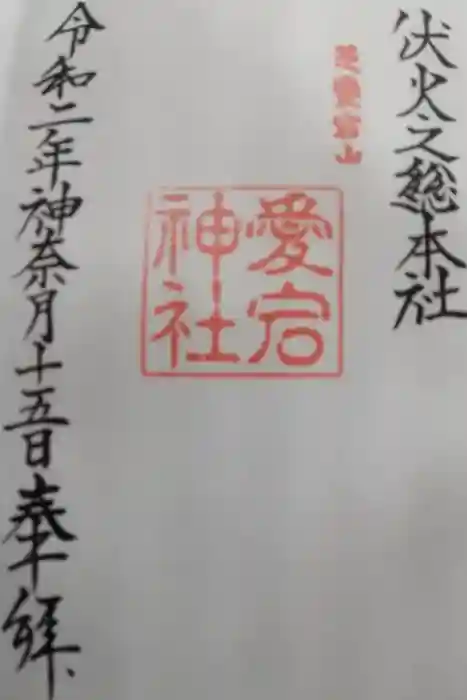 伏火之総本社
愛宕山
愛宕
神社
令和二年神奈月十五日奉拝